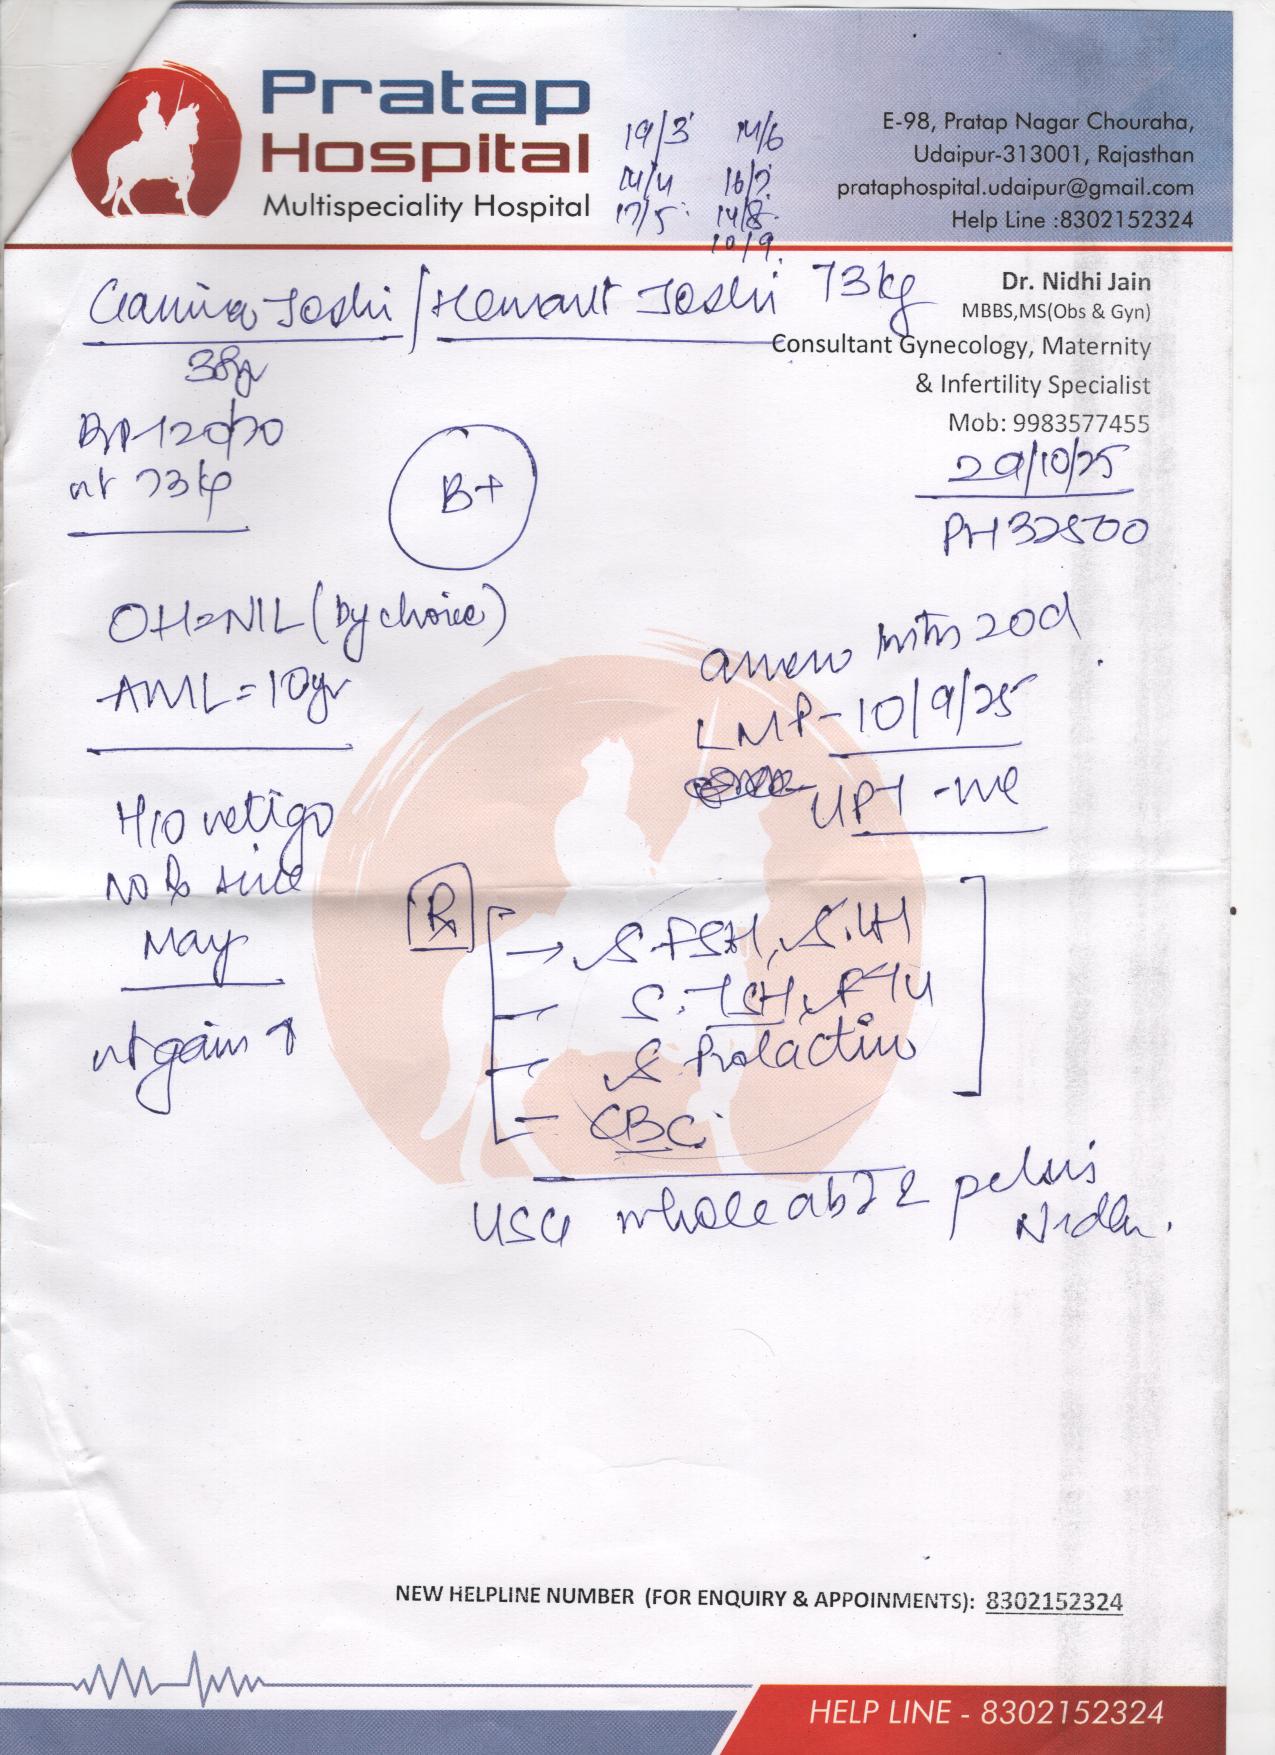 Pratap
Hospital
Multispeciality Hospital
19/3 14/6
14/4 16/7
17/5 14/8
10/9
E-98, Pratap Nagar Chouraha,
Udaipur-313001, Rajasthan
prataphospital.udaipur@gmail.com
Help Line :8302152324
Joshi / Hemant Joshi 73kg
38yr
BP-120/70
wt 73kg
B+
Dr. Nidhi Jain
MBBS,MS(Obs & Gyn)
Consultant Gynecology, Maternity
& Infertility Specialist
Mob: 9983577455
29/10/25
PH32500
OH=NIL (by choice)
AML=10yr
H/O vertigo
No Rx since
May
wt gain ↑
20d
LMP-10/9/25
UPT -ve
Rx
→ S.FSH, S.LH
- S.TSH, FT4
- S. Prolactin
- CBC
USG whole abd & pelvis
Nidhi
NEW HELPLINE NUMBER (FOR ENQUIRY & APPOINMENTS): 8302152324
HELP LINE - 8302152324